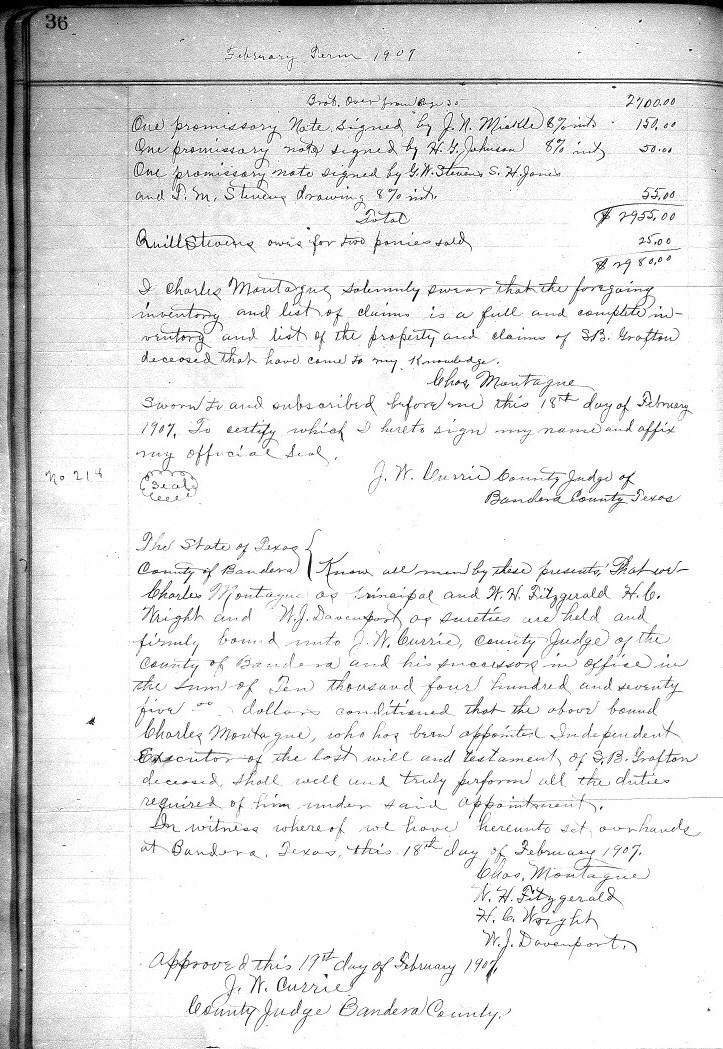 36
February Term 1907
Brot. Over from Page 30 2700.00
One promissory Note signed by J. N. Mickle 8% int. 150.00
One promissory note signed by H. G. Johnson 8% int, 50.00
One promissory note signed by G. W. Stevens S. H. Jones
and T. M. Stevens drawing 8% int. 55.00
Total $ 2955.00
Quill Stevens owes for two ponies sold 25.00
$ 2980.00
I Charles Montague solemnly swear that the foregoing
inventory and list of claims is a full and complete in-
ventory and list of the property and claims of S. B. Grafton
deceased that have come to my Knowledge.
Chas Montague
Sworn to and subscribed before me this 18th day of February
1907. To certify which I hereto sign my name and affix
my official Seal.
No 214
Seal
J. W. Currie County Judge of
Bandera County Texas
The State of Texas
County of Bandera { Know all men by these presents, That we
Charles Montague as principal and W. H. Fitzgerald H. C.
Wright and W. J. Davenport as sureties are held and
firmly bound unto J. W. Currie, County Judge of the
County of Bandera and his successors in office in
the sum of Ten thousand four hundred and seventy
five 00 dollars conditioned that the above bound
Charles Montague, who has been appointed Independent
Executor of the last will and testament of S. B. Grafton
deceased, shall well and truly perform all the duties
required of him under said appointment.
In witness whereof we have hereunto set our hands
at Bandera, Texas, this 18th day of February 1907.
Chas. Montague
W. H. Fitzgerald
H. C. Wright
W. J. Davenport.
Approved this 19th day of February 1907.
J. W. Currie
County Judge Bandera County.